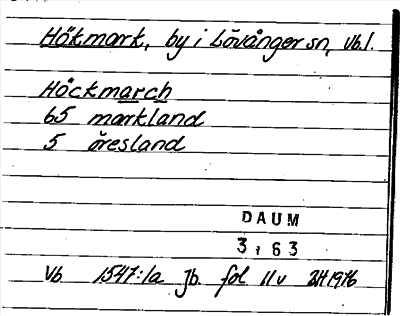 Hökmark, by i Lövånger sn, Vb.l.
Höckmarch
65 markland
5 öresland
DAUM
3:63
Vb 1547:1a jb. fol 11v 2H 1976